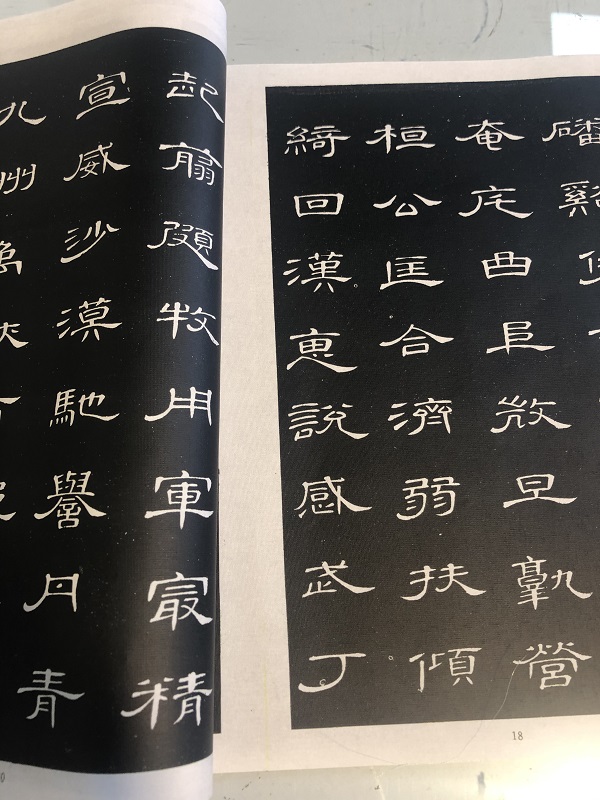 磻谿
奄宅曲阜微旦孰營
桓公匡合濟弱扶傾
綺回漢惠說感武丁
18
起翦頗牧用軍最精
宣威沙漠馳譽丹青
九州禹